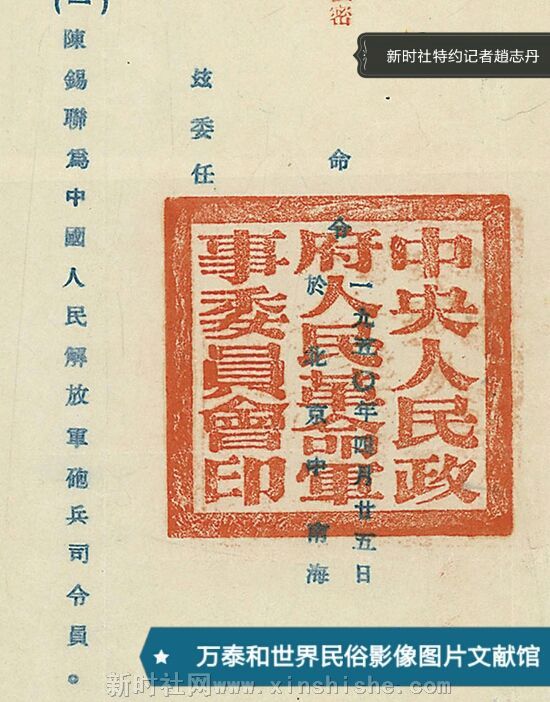 新时社特约记者趙志丹
密
命令
一九五〇年四月廿五日
於北京中南海
中央人民政
府人民革命軍
事委員會印
兹委任
陳錫聯爲中國人民解放軍砲兵司令員。
万泰和世界民俗影像图片文献馆
新时社网www.xinshishe.com